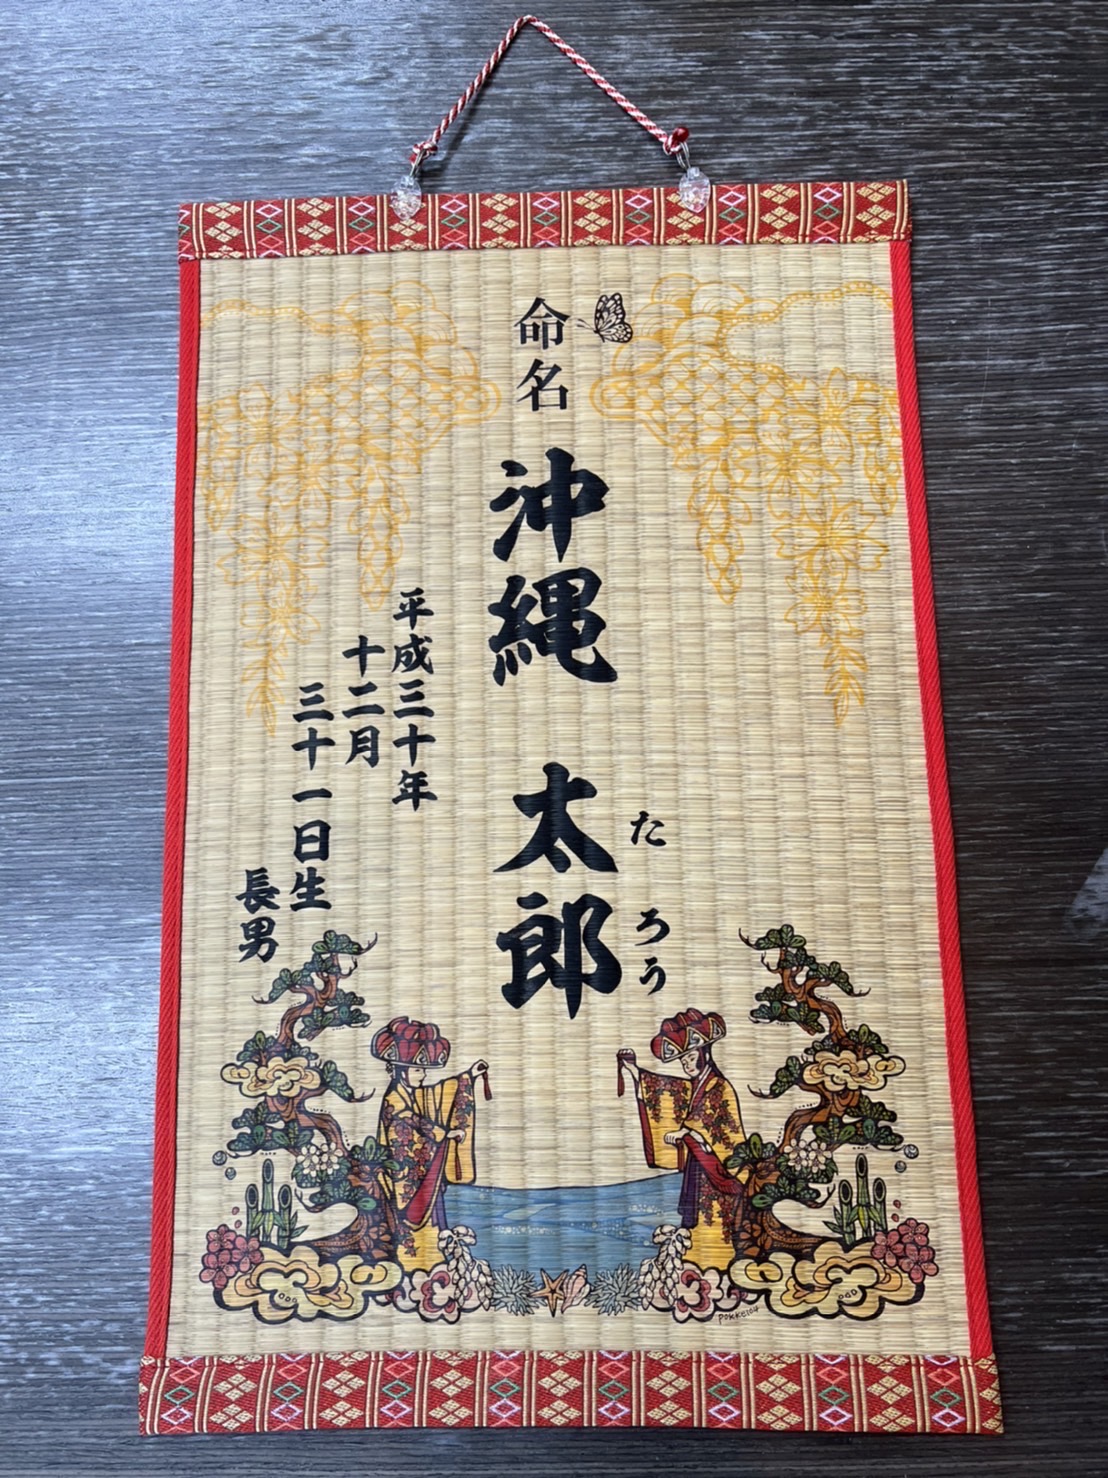 命名
沖縄 太郎
たろう
平成三十年
十二月
三十一日生
長男
pokke104